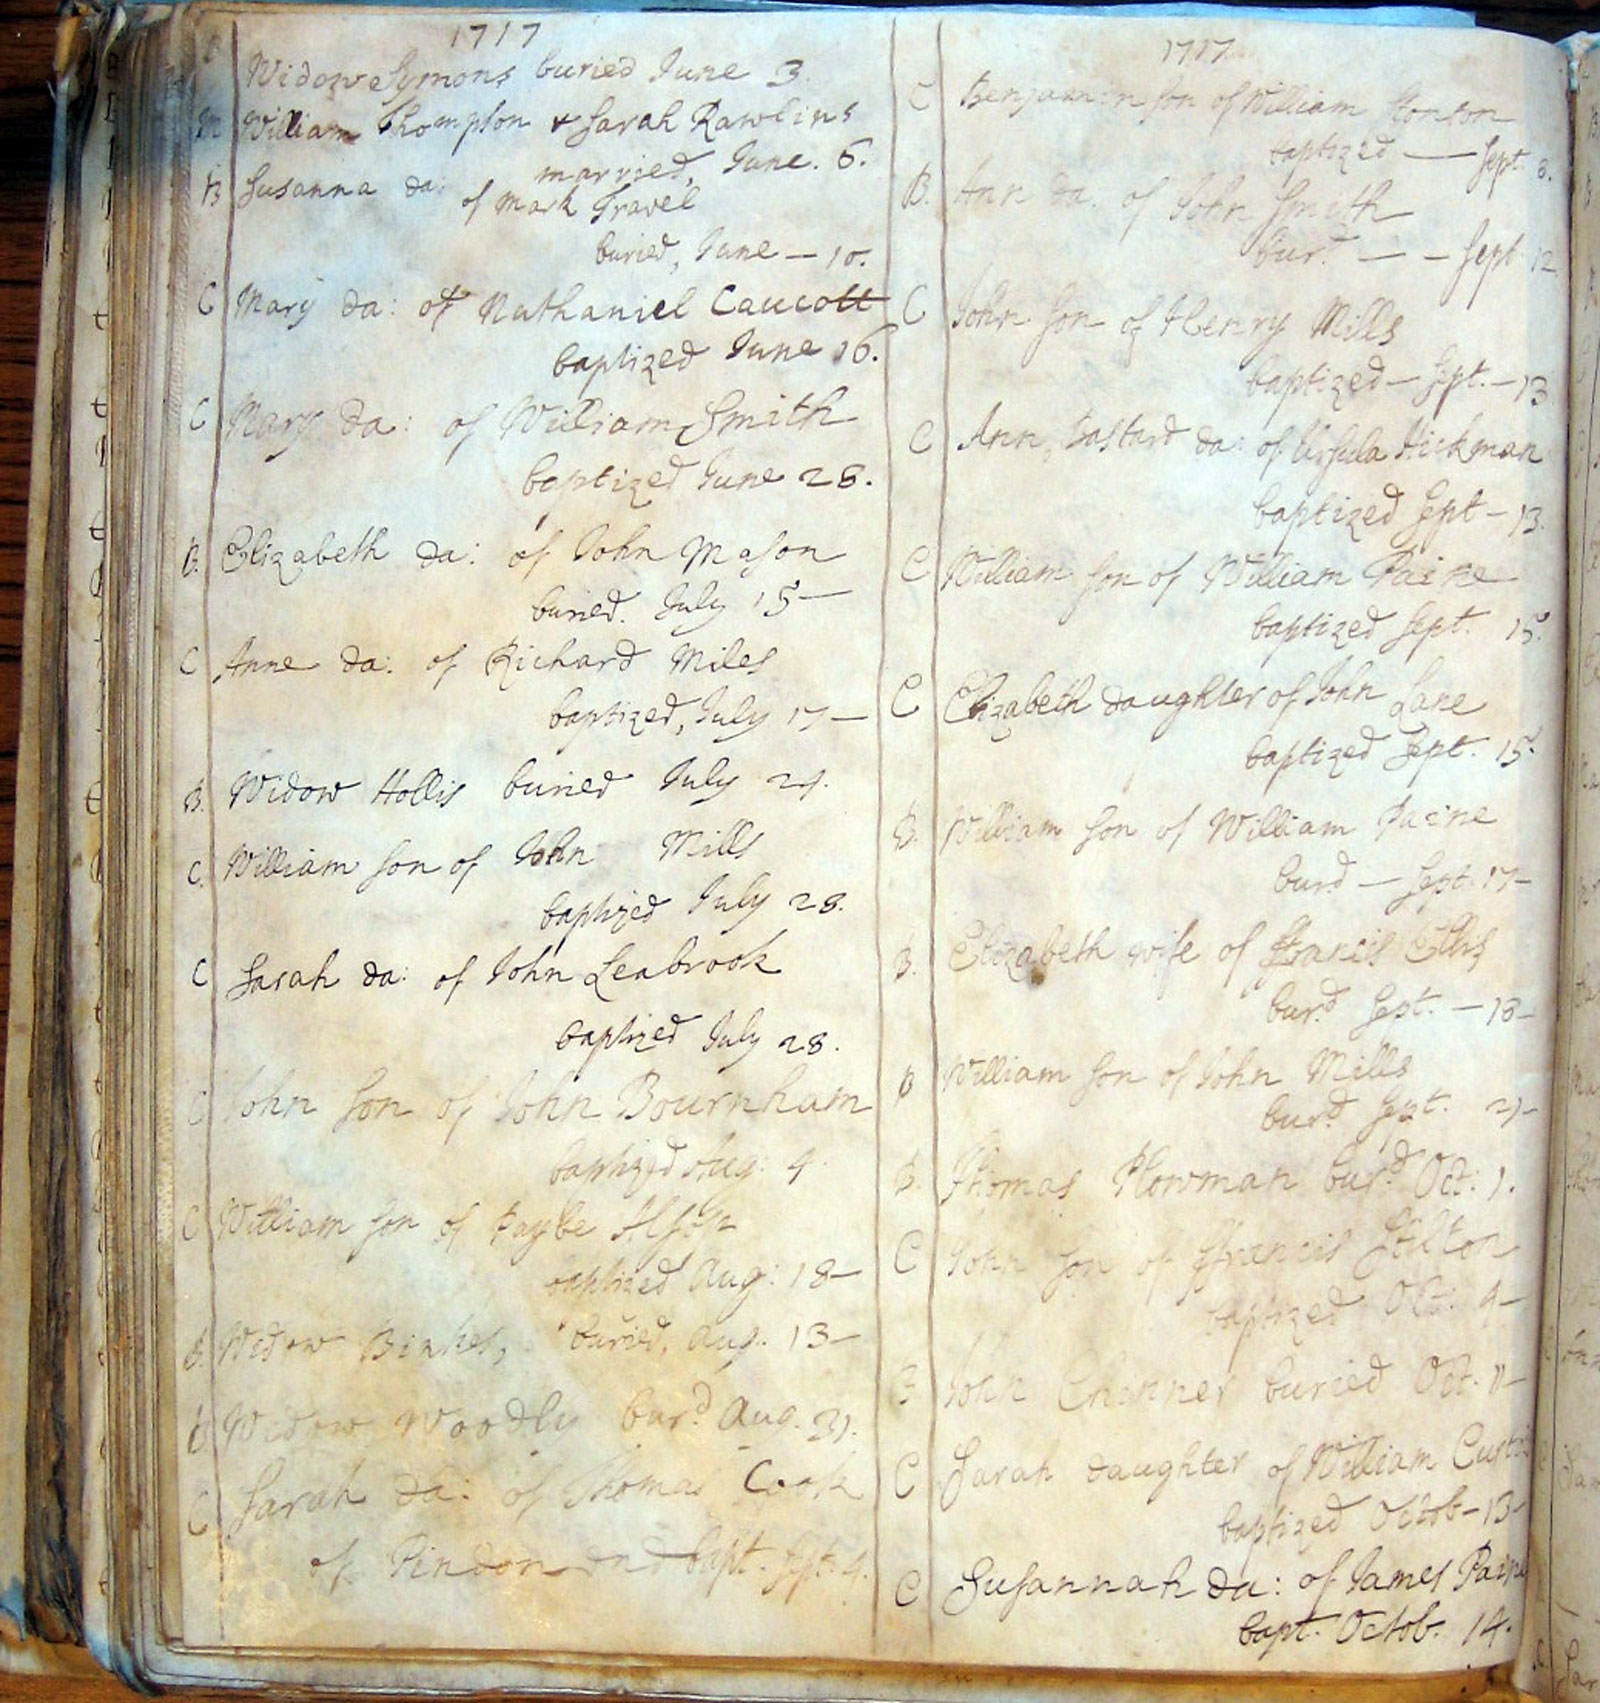 1717
Widow Symons buried June 3.
M William Thompson & Sarah Rawlins
married, June. 6.
B Susanna da: of Mark Travel
buried, June — 10.
C Mary da: of Nathaniel Caucott
baptized June 16.
C Mary da: of William Smith
baptized June 28.
B. Elizabeth da: of John Mason
buried. July 15 —
C Anne da: of Richard Miles
baptized, July 17 —
B. Widow Hollis buried July 24.
C. William son of John Mills
baptized July 28.
C Sarah da: of John Leabrook
baptized July 28.
C John son of John Bournham
baptized Aug: 4
C William son of Alsop
baptized Aug: 18 —
B. Widow buried, Aug. 13 —
B Widow Woodly bur.d Aug. 31.
C Sarah da: of Thomas Cook
of bapt. Sept. 4.
1717
C Benjamin son of William
baptized — Sept. 8.
B. Ann da. of John Smith
bur.d — — Sept 12
C John son of Henry Mills
baptized — Sept. — 13
C Ann, bastard da: of Ursula Hickman
baptized Sept — 13.
C William son of William Paine
baptized Sept. 15.
C Elizabeth daughter of John Lane
baptized Sept. 15.
B. William son of William Paine
burd — Sept. 17 —
B. Elizabeth wife of ffrancis Ellis
bur.d Sept. — 18 —
B William son of John Mills
bur.d Sept. 21 —
B. Thomas Plowman bur.d Oct: 1.
C John son of ffrancis Stilton
baptized Oct: 4 —
B John buried Oct. 11 —
C Sarah daughter of William
baptized Octob — 13 —
C Susannah da: of James Paine
bapt. Octob. 14.